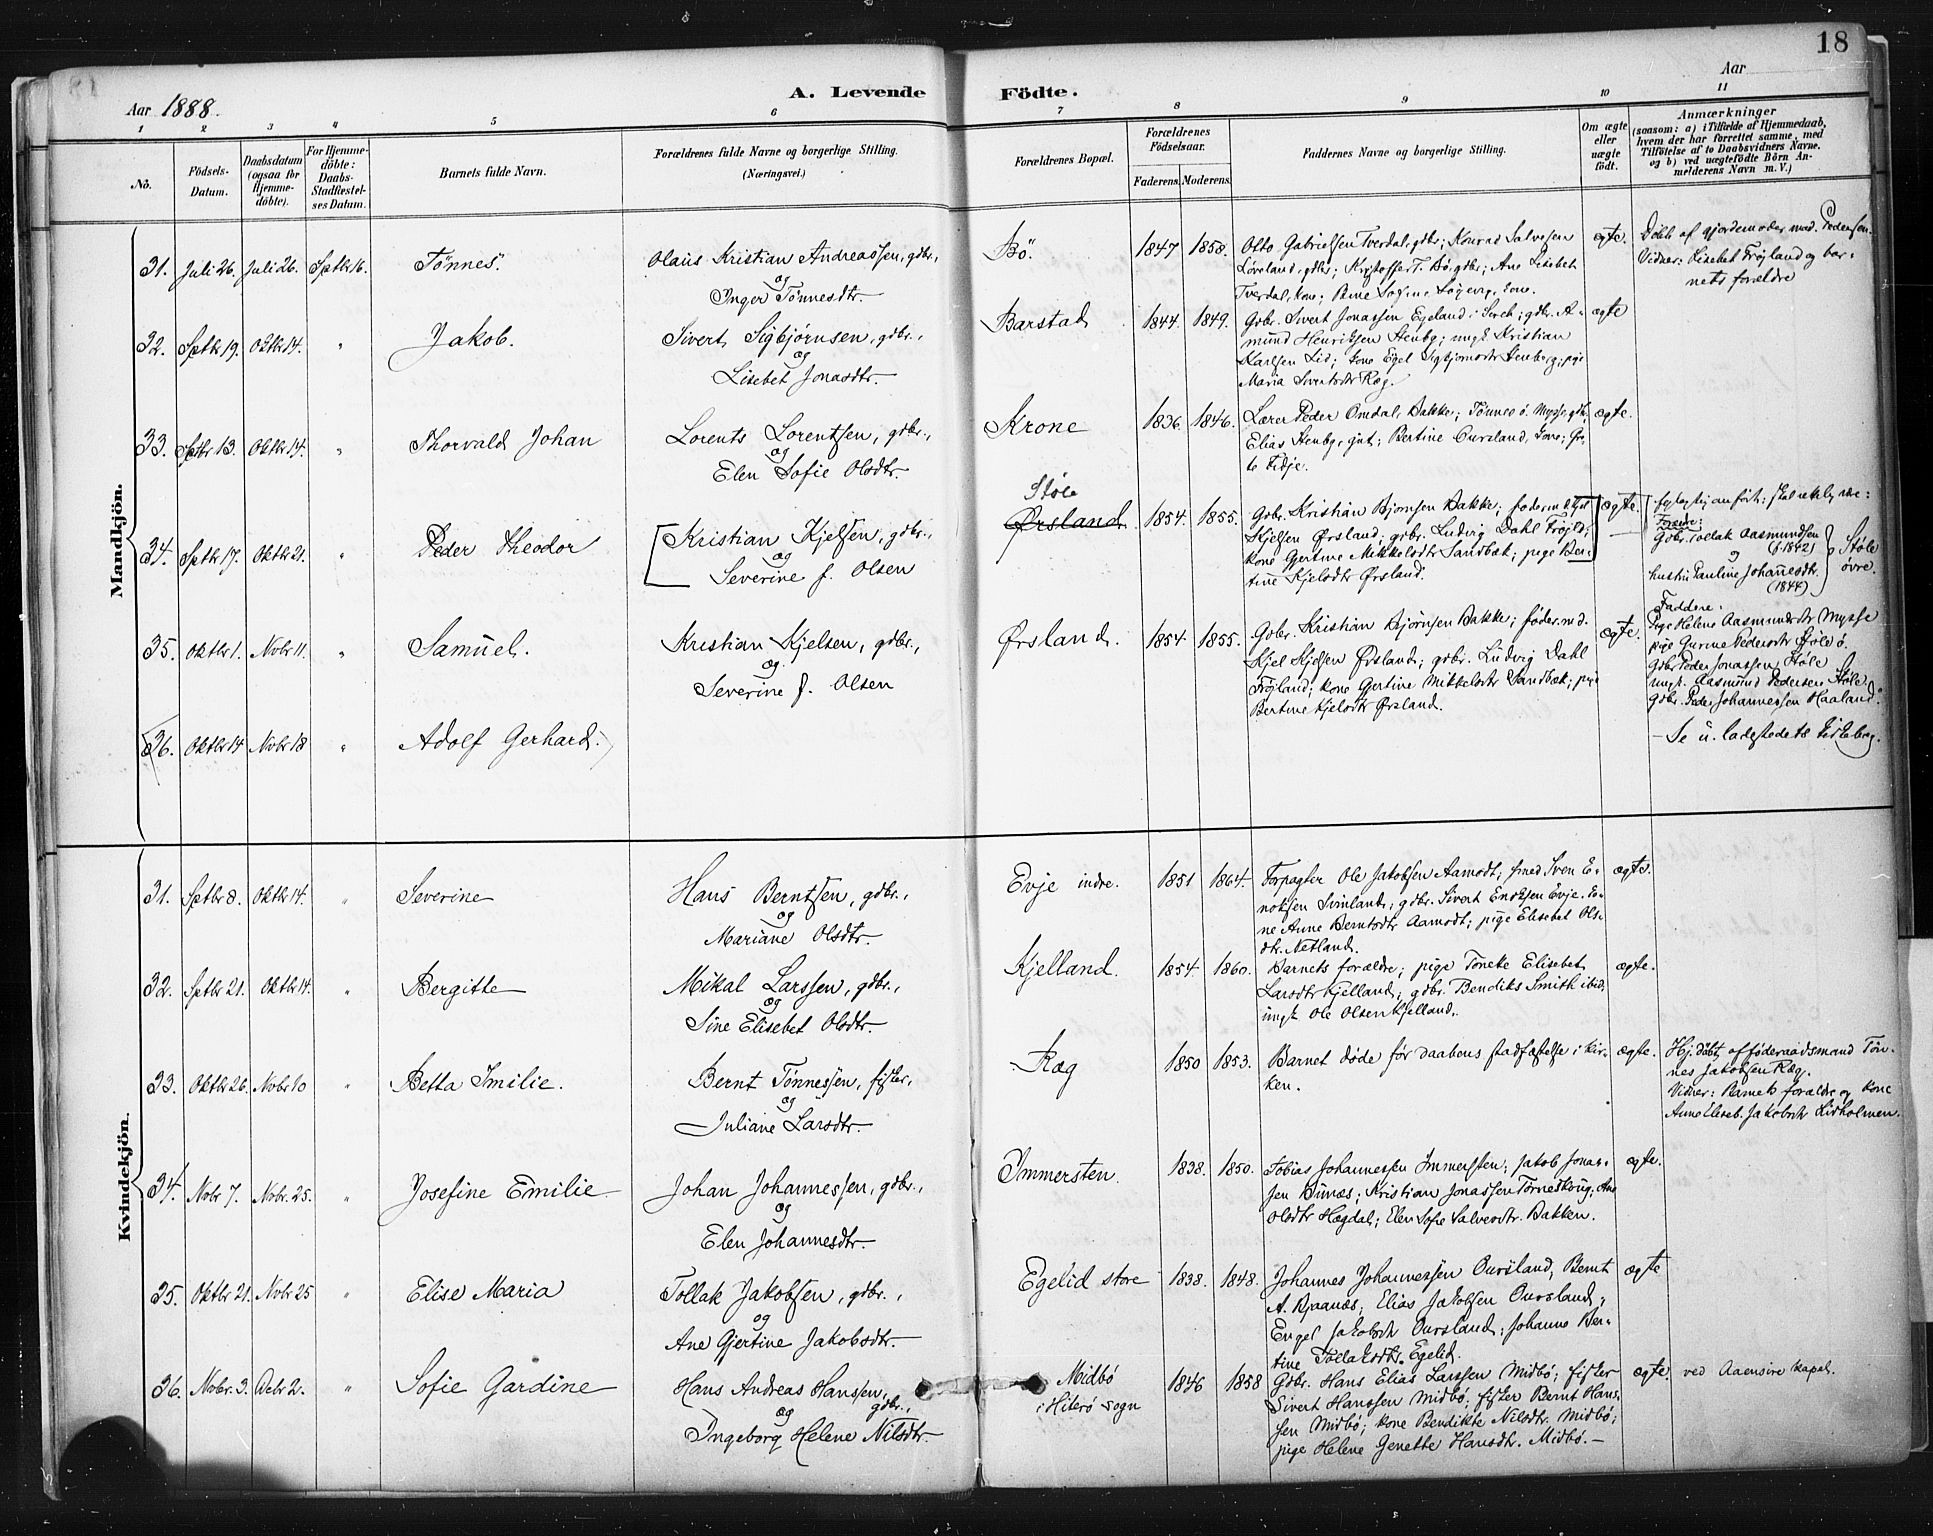 18
Aar 1888.
A. Levende Födte.
Aar
1 2 3 4 5 6 7 8 9 10 11
No.
Födsels-Datum.
Daabsdatum (ogsaa for Hjemme-döbte).
For Hjemme-döbte: Daabs-Stadfæstel-ses Datum.
Barnets fulde Navn.
Forældrenes fulde Navne og borgerlige Stilling.
(Næringsvei.)
Forældrenes Bopæl.
Forældrenes Födselsaar.
Faderens. Moderens.
Faddernes Navne og borgerlige Stilling.
Om ægte eller uægte födt.
Anmærkninger
(saasom: a) i Tilfælde af Hjemmedaab,
hvem der har forrettet samme, med
Tilföielse af to Daabsvidners Navne.
og b) ved uægtefödte Börn An-
melderens Navn m. V.)
Mandkjön.
31. Juli 26. Juli 26. Sptbr 16. Tönnes.
Olaus Kristian Andreassen, gdbr.,
og
Inger Tønnesdtr.
Bö. 1847 1858.
Otto Gabrielsen Tverdal, gdbr; Konrad Salvesen
Löveland, gdbr; Kristoffer T. Bö, gdbr; Ane Lisebet
Tverdal, kone;
ægte.
Döbt af gjordemoder mad. Pedersen.
Vidner: Lisebet Fröyland og bar-
nets forældre
32. Sptbr 19. Oktbr 14. " Jakob.
Sivert Sigbjørnsen, gdbr.,
og
Lisebet Jonasdtr.
Barstad 1844. 1849.
Gdbr. Sivert Jonassen Egeland i Sireb; gdbr. A-
mund Henriksen Stenbg; ungk. Kristian
Karlsen Lid; kone Egel Sigbjørnsdtr Stenberg; pige
Maria Sivertsdtr Ræg.
ægte
33. Sptbr 13. Oktbr 14. " Thorvald Johan
Lorents Lorentsen, gdbr.,
og
Elen Sofie Olsdtr.
Krone 1836. 1846.
Lærer Peder Omdal, Bakke; Tönnes ö. Mysse, gdb,
Elias Stenbg, gut; Bertine Oursland, kone; Gre-
te Fidje.
ægte.
34. Sptbr 17. Oktbr 21. " Peder Theodor
[Kristian Kjelsen, gdbr.,
og
Severine f. Olsen
Støle
Ørsland. 1854. 1855.
Gdbr. Kristian Bjørnsen Bakke; föderm. Kjel
Kjelsen Ørsland; gdbr. Ludvig Dahl Fröjld;
kone Gertine Mikkelsdtr Sandbæk; pige Ber-
tine Kjelsdtr Ørsland.
ægte.
fejlagtig anfört; skal rettelig være:
Gdbr. Tollak Aasmundsen
(f. 1842)
og
hustru Pauline Johannesdtr.
(1844)
Støle
övre.
35. Oktbr 1. Novbr 11. " Samuel.
Kristian Kjelsen, gdbr.,
og
Severine f. Olsen
Ørsland. 1854 1855.
Gdbr. Kristian Bjørnsen Bakke; föder.md.
Kjel Kjelsen Ørsland; gdbr. Ludvig Dahl
Fröjland; kone Gertine Mikkelsdtr Sandbæk; pige
Bertine Kjelsdtr Ørsland.
ægte.
Faddere:
Pige Helene Aasmundsdtr Mysse
pige Gurine Pedersdtr Støle ö.
Gdbr. Peder Jonassen Støle
ungk. Aasmund Pedersen Støle
gdbr. Peder Johannessen Haaland.
36. Oktbr 14 Novbr 18 " Adolf Gerhard.
- Se u. ladestedets kirkebog.
Kvindekjön.
31. Sptbr 8. Oktbr 14. " Severine
Hans Berntsen, gdbr.,
og
Mariane Olsdtr.
Evje indre. 1851 1864.
Forpagter Ole Jakobsen Aamodt; smed Sven E-
noksen Svinland; gdbr. Sivert Enoksen Evje; ko-
ne Anne Berntsdtr Aamodt; pige Elisebet Ols-
dtr. Netland.
ægte.
32. Sptbr 21. Oktbr 14. " Bergitte
Mikal Larssen, gdbr.,
og
Sine Elisebet Olsdtr.
Kjelland. 1854. 1860.
Barnets forældre; pige Toneke Elisebet
Larsdtr Kjelland; gdbr. Bendiks Smith ibid;
ungk. Ole Olsen Kjelland.
ægte.
33. Oktbr 26. Novbr 10 " Betta Emilie.
Bernt Tønnessen, fisker,
og
Juliane Larsdtr.
Ræg 1850 1853.
Barnet döde för daabens stadfæstelse i kir-
ken.
ægte.
Hj.döbt af föderaadsmand Tön-
nes Jakobsen Ræg.
Vidner: Barnets forældre og kone
Anne Eliseb. Jakobsdtr Lidholmen.
34. Novbr 7. Novbr. 25. " Josefine Emilie
Johan Johannessen, gdbr.,
og
Elen Johannesdtr.
Immersten. 1838. 1850.
Tobias Johannessen Immersten; Jakob Jonas-
sen Bunes; Kristian Jonassen Torneskoug; Ane
Olsdtr Hægdal; Elen Sofie Salvesdtr. Bakken.
ægte.
35. Oktbr 21. Novbr 25 " Elise Maria
Tollak Jakobsen, gdbr.,
og
Ane Gjertine Jakobsdtr.
Egelid store 1838. 1848.
Johannes Johannessen Oursland; Bernt
A. Raanæs; Elias Jakobsen Oursland;
Engel Jakobsdtr Oursland; Johanne Ber-
tine Tollaksdtr. Egelid.
ægte
36. Novbr. 3. Decbr 2. " Sofie Gardine
Hans Andreas Hanssen, gdbr.,
og
Ingeborg Helene Nilsdtr.
Midbø
i Hiterø sogn
1846 1858
Gdbr. Hans Elias Larssen Midbø; fisker
Sivert Hanssen Midbø; fisker Bernt Hans-
sen Midbø; kone Bendikte Nilsdtr. Midbø;
pige Helene Genette Hansdtr. Midbø.-
ægte. ved Aaensire kapel.